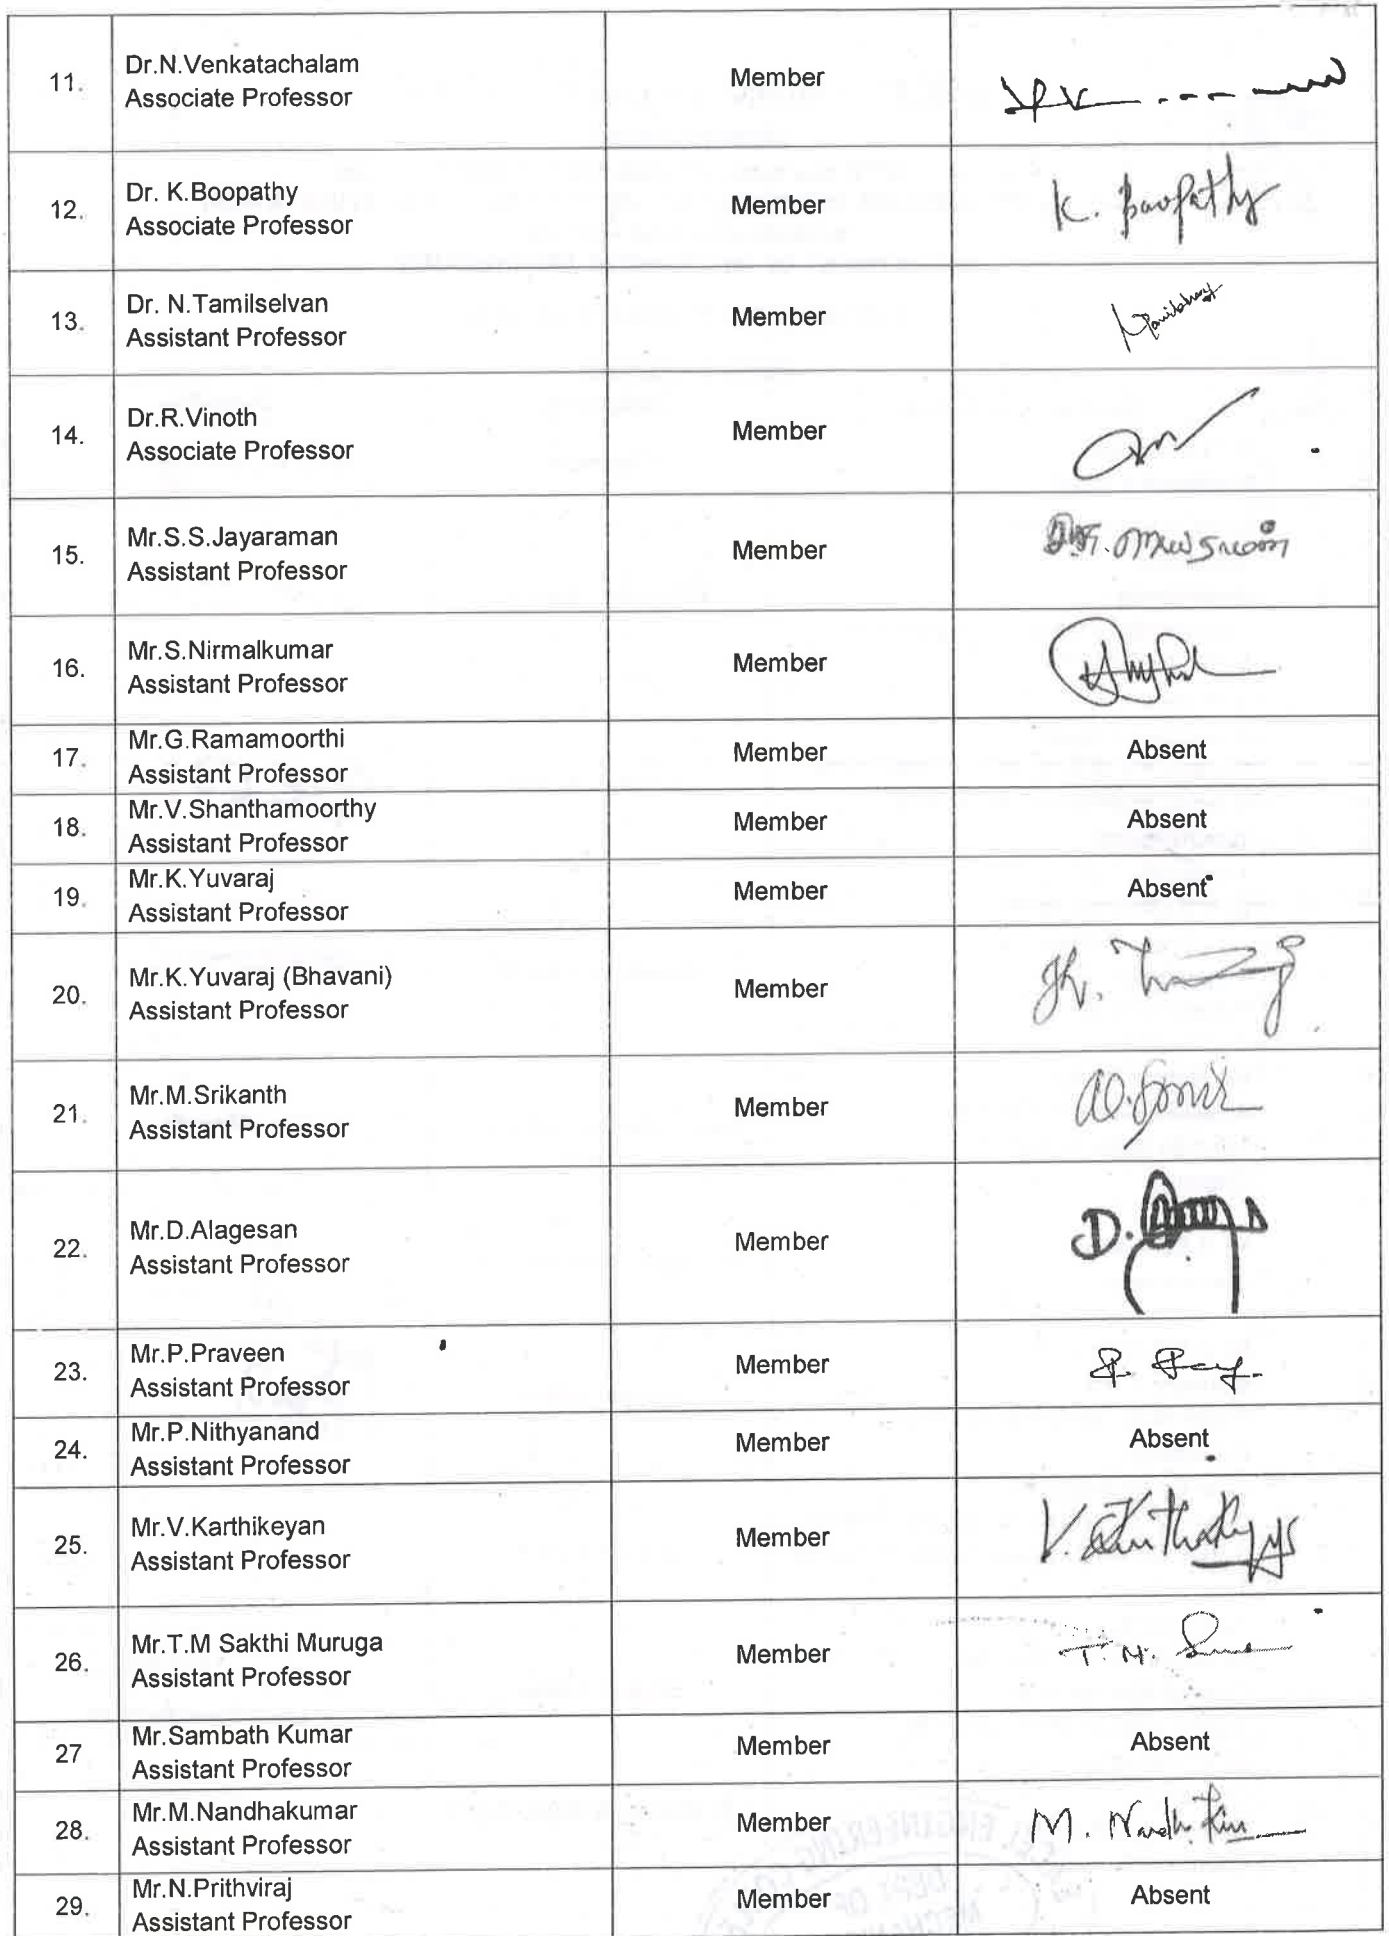 11.
Dr.N.Venkatachalam
Associate Professor
Member
12.
Dr. K.Boopathy
Associate Professor
Member
K. Boopathy
13.
Dr. N.Tamilselvan
Assistant Professor
Member
14.
Dr.R.Vinoth
Associate Professor
Member
15.
Mr.S.S.Jayaraman
Assistant Professor
Member
16.
Mr.S.Nirmalkumar
Assistant Professor
Member
17.
Mr.G.Ramamoorthi
Assistant Professor
Member
Absent
18.
Mr.V.Shanthamoorthy
Assistant Professor
Member
Absent
19.
Mr.K.Yuvaraj
Assistant Professor
Member
Absent
20.
Mr.K.Yuvaraj (Bhavani)
Assistant Professor
Member
21.
Mr.M.Srikanth
Assistant Professor
Member
22.
Mr.D.Alagesan
Assistant Professor
Member
D.
23.
Mr.P.Praveen
Assistant Professor
Member
P.
24.
Mr.P.Nithyanand
Assistant Professor
Member
Absent
25.
Mr.V.Karthikeyan
Assistant Professor
Member
V.
26.
Mr.T.M Sakthi Muruga
Assistant Professor
Member
T. M.
27
Mr.Sambath Kumar
Assistant Professor
Member
Absent
28.
Mr.M.Nandhakumar
Assistant Professor
Member
M.
29.
Mr.N.Prithviraj
Assistant Professor
Member
Absent